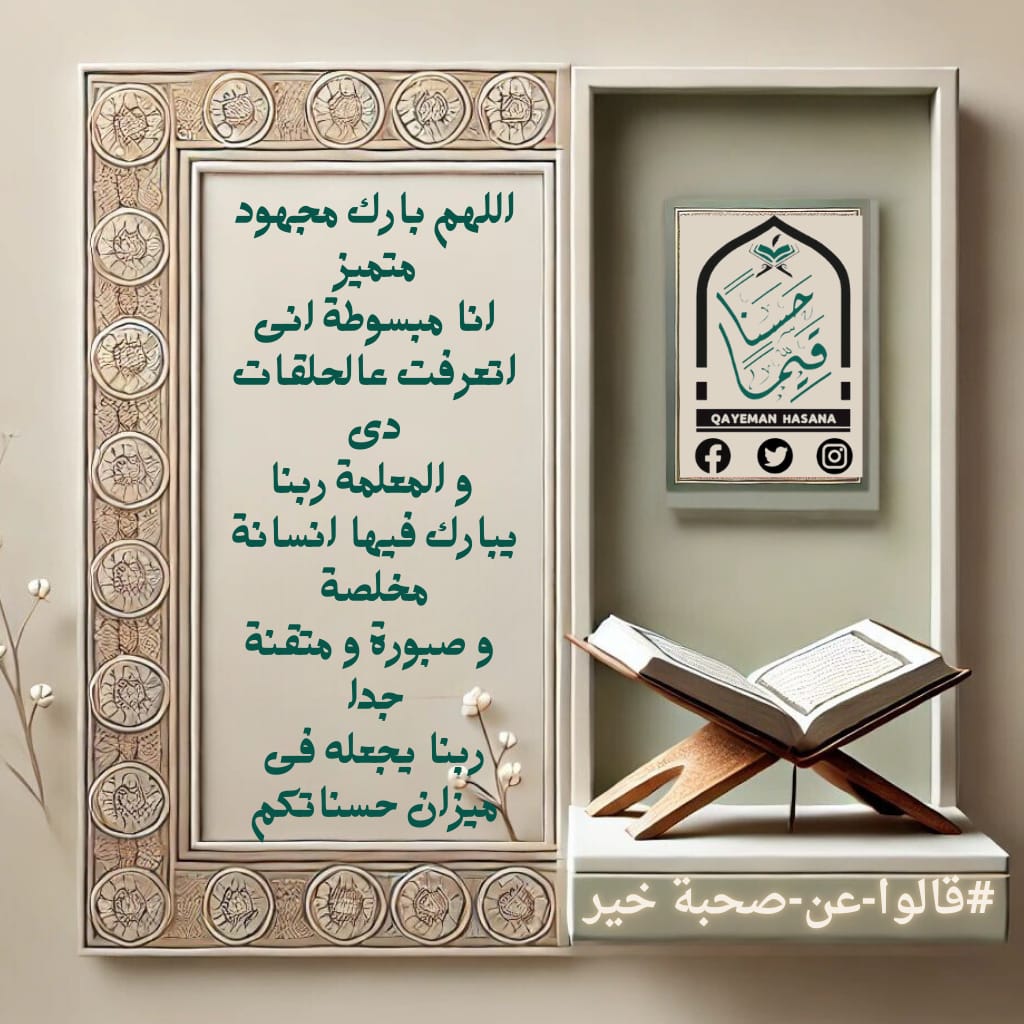 اللهم بارك مجهود
متميز
انا مبسوطة انى
اتعرفت عالحلقات
دى
و المعلمة ربنا
يبارك فيها انسانة
مخلصة
و صبورة و متقنة
جدا
ربنا يجعله فى
ميزان حسناتكم
حَسَنًا
قَيِّمًا
QAYEMAN HASANA
#قالوا-عن-صحبة خير